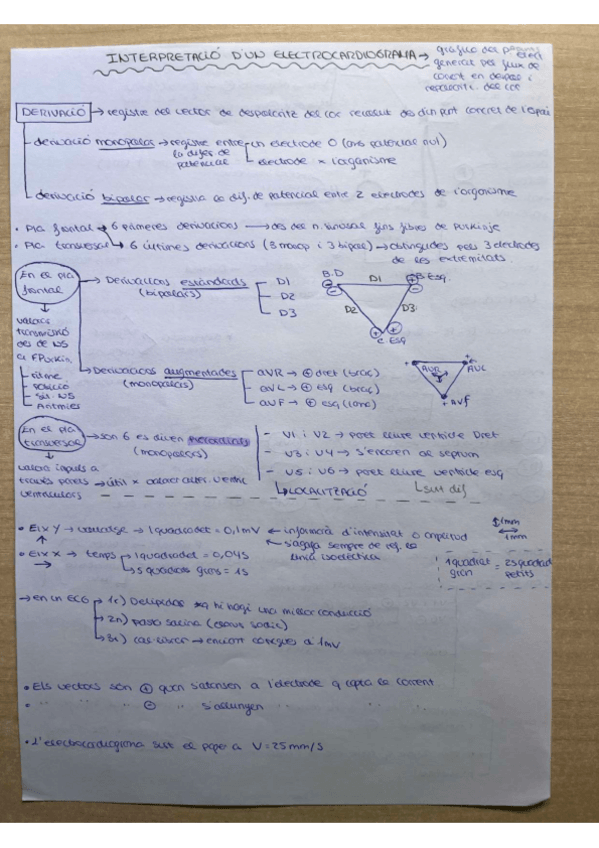 INTERPRETACIÓ D'UN ELECTROCARDIOGRAMA → gràfico del
general del flux de
corent en despol i
repolaritz. del cor
DERIVACIÓ → registre del vector de despolaritz del cor recollit des d'un punt concret de l'espai
derivació monopolar → registre entre un electrode 0 (amb potencial nul)
la difer de potencial
electrode x l'organisme
derivació bipolar → registra la dif. de potencial entre 2 electrodes de l'organisme
• Pla frontal → 6 primeres derivacions → des del n. sinusal fins fibres de Purkinje
• Pla transversal → 6 últimes derivacions (3 monop i 3 bipol) → obtingudes pels 3 electrodes
de les extremitats.
En el pla frontal
→ Derivacions estàndards (bipolars)
D1
D2
D3
B.D
D1
B Esq.
D2
D3
C Esq
valora transmissió
des de NS
a FPurkin
ritme
posició
Sit. NS
Aritmies
→ Derivacions augmentades (monopolars)
aVR → + dret (braç)
aVL → + esq (braç)
aVF → + esq (cama)
AVR
AVL
AVF
En el pla transversal
→ són 6 es diuen precordials (monopolars)
- V1 i V2 → paret lliure ventricle Dret
- V3 i V4 → s'enforen al septum
- V5 i V6 → paret lliure ventricle esq
valora impuls a
través parets ventriculars
→ útil x valorar alter. ventric
↳ LOCALITZACIÓ
• EIX Y → voltatge → 1 quadradet = 0,1mV ← informació d'intensitat o amplitud
s'agafa sempre de ref. la
línia isoelèctrica
• EIX X → temps
1 quadradet = 0,04s
5 quadrats grans = 1s
1mm
1mm
1 quadrat gran = 25 quadrad petits
→ en un ECG
1r) Depilades xq hi hagi una millor conducció
2n) pasta salina (clorur sòdic)
3r) calibrar → enviant corregues a 1mV
• Els vectors són + quan s'atansen a l'electrode q capta la corrent
• " " " - " s'allunyen " " " " "
• L'electrocardiograma surt el paper a V = 25mm/s